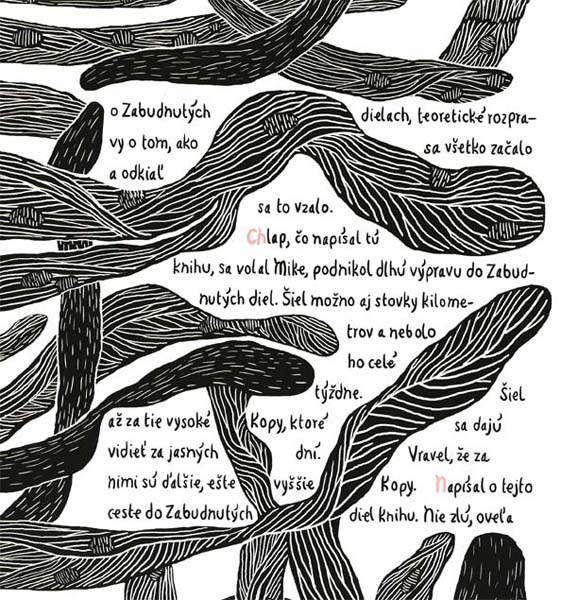 o Zabudnutých dielach, teoretické rozpra-
vy o tom, ako sa všetko začalo
a odkiaľ
sa to vzalo.
Chlap, čo napísal tú
knihu, sa volal Mike, podnikol dlhú výpravu do Zabud-
nutých diel. Šiel možno aj stovky kilome-
trov a nebolo
ho celé
týždne. Šiel
až za tie vysoké Kopy, ktoré sa dajú
vidieť za jasných dní. Vravel, že za
nimi sú ďalšie, ešte vyššie Kopy. Napísal o tejto
ceste do Zabudnutých diel knihu. Nie zlú, oveľa